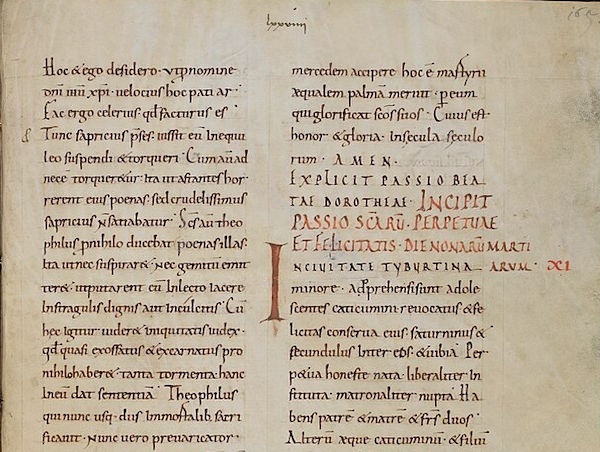 lxxviiii
Hoc & ego desidero · ut p nomine
dnī mī xp̄i · velocius hoc patiar ·
Fac ergo celerius · qd facturus es
Tunc sapricius pses · iussit eū in equu
leo suspendi & torqueri · Cum au ad
necē torqueret̄ · ita ut astantes hor
rerent eius poenas · sed crudelissimus
sapricius ñ satiabatur · Scs aū theo
philus p nihilo ducebat poenas illas ·
Ita ut nec suspirare · nec gemitū emit
tere · ut putarent eū in lecto iacere
Infragulis dignis aut in culcitis · Cū
hec igitur videre iniquitatis iudex ·
qd quasi exossatus & excarnatus pro
nihilo habere & tanta tormenta hanc
In eū dat sententiā · Theophilus
qui nunc usq · diis immortalib · sacri
ficavit · nunc vero prevaricator ·
mercedem accipere hoc ē martyrii
æqualem palmā meruit · p eum
qui glorificat scōs suos · Cuius est
honor & gloria · in secula seculo
rum · AMEN ·
EXPLICIT PASSIO BEA
TAE DOROTHEAE · INCIPIT
PASSIO SCARŪ · PERPETUAE
ET FELICITATIS · DIE NONARŪ MARTI
ARUM · XI
IN CIVITATE TYBURTINA
minore · adprehensi sunt adole
scentes caticumini · revocatus & fe
licitas conserva eius · saturninus &
secundulus · Inter eos · & vibia Per
p&ua honeste nata · liberaliter in
stituta · matronaliter nupta · Ha
bens patrē & matrē & frs duos ·
Alterū æque caticuminū · & filiū